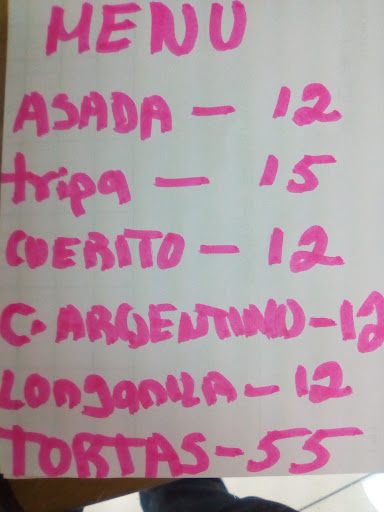 MENU
ASADA - 12
tripa - 15
CUERITO - 12
C. ARGENTINO - 12
LONganiza - 12
TORTAS - 55